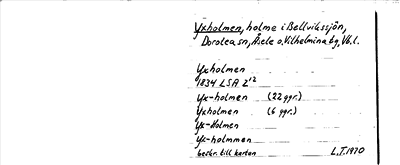 Yxholmen, holme i Bellvikssjön,
Dorotea sn, Åsele o. Vilhelmina tg, Vb.l.
Yxholmen
1834 LSA Z¹²
Yx-holmen (22 ggr.)
Yxholmen (6 ggr.)
Yx-Holmen
Yx-holmmen
beskr. till kartan L.T. 1970